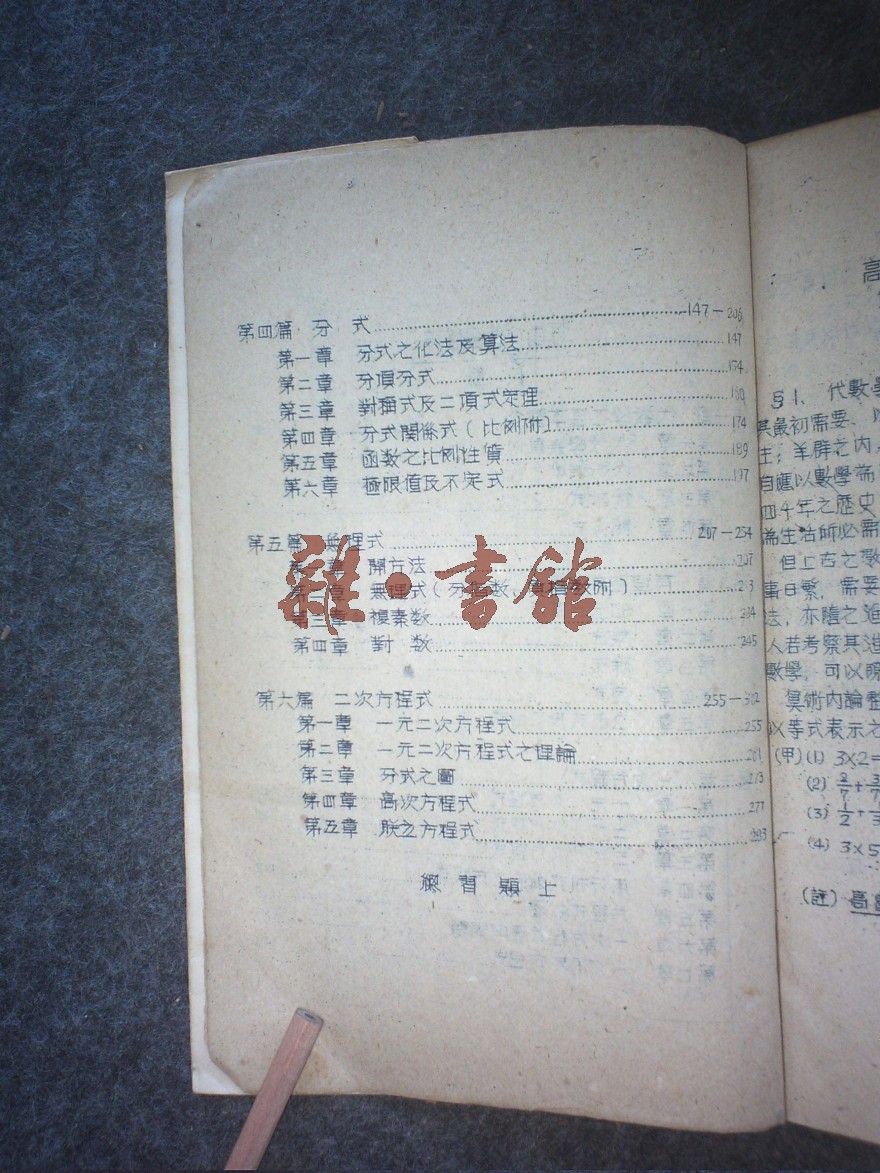 第四篇 分 式 147-206
第一章 分式之化法及算法 147
第二章 分項分式 174
第三章 對稱式及二項式定理
第四章 分式關係式(比例附) 174
第五章 函数之比例性質 189
第六章 極限值及不定式 197
第五篇 無理式 207-254
開方法 207
無理式(分指数、負指数附)
第三章 複素数
第四章 對 数 245
第六篇 二次方程式 255-302
第一章 一元二次方程式 255
第二章 一元二次方程式之理論 261
第三章 分式之圖 273
第四章 高次方程式 277
第五章 联立方程式 293
總習題上
雜·書館
高
§1. 代數學
其最初需要、以
生;羊群之内,
四千年之歷史
為生活所必需
但上古之數
事日繁,需要
法,亦隨之進
人若考察其進
數學,可以
算術内論整
以等式表示之
(甲)(1) 3×2=
(2) 2/7+3/7
(3) 1/2+1/3
(4) 3×5
(註)